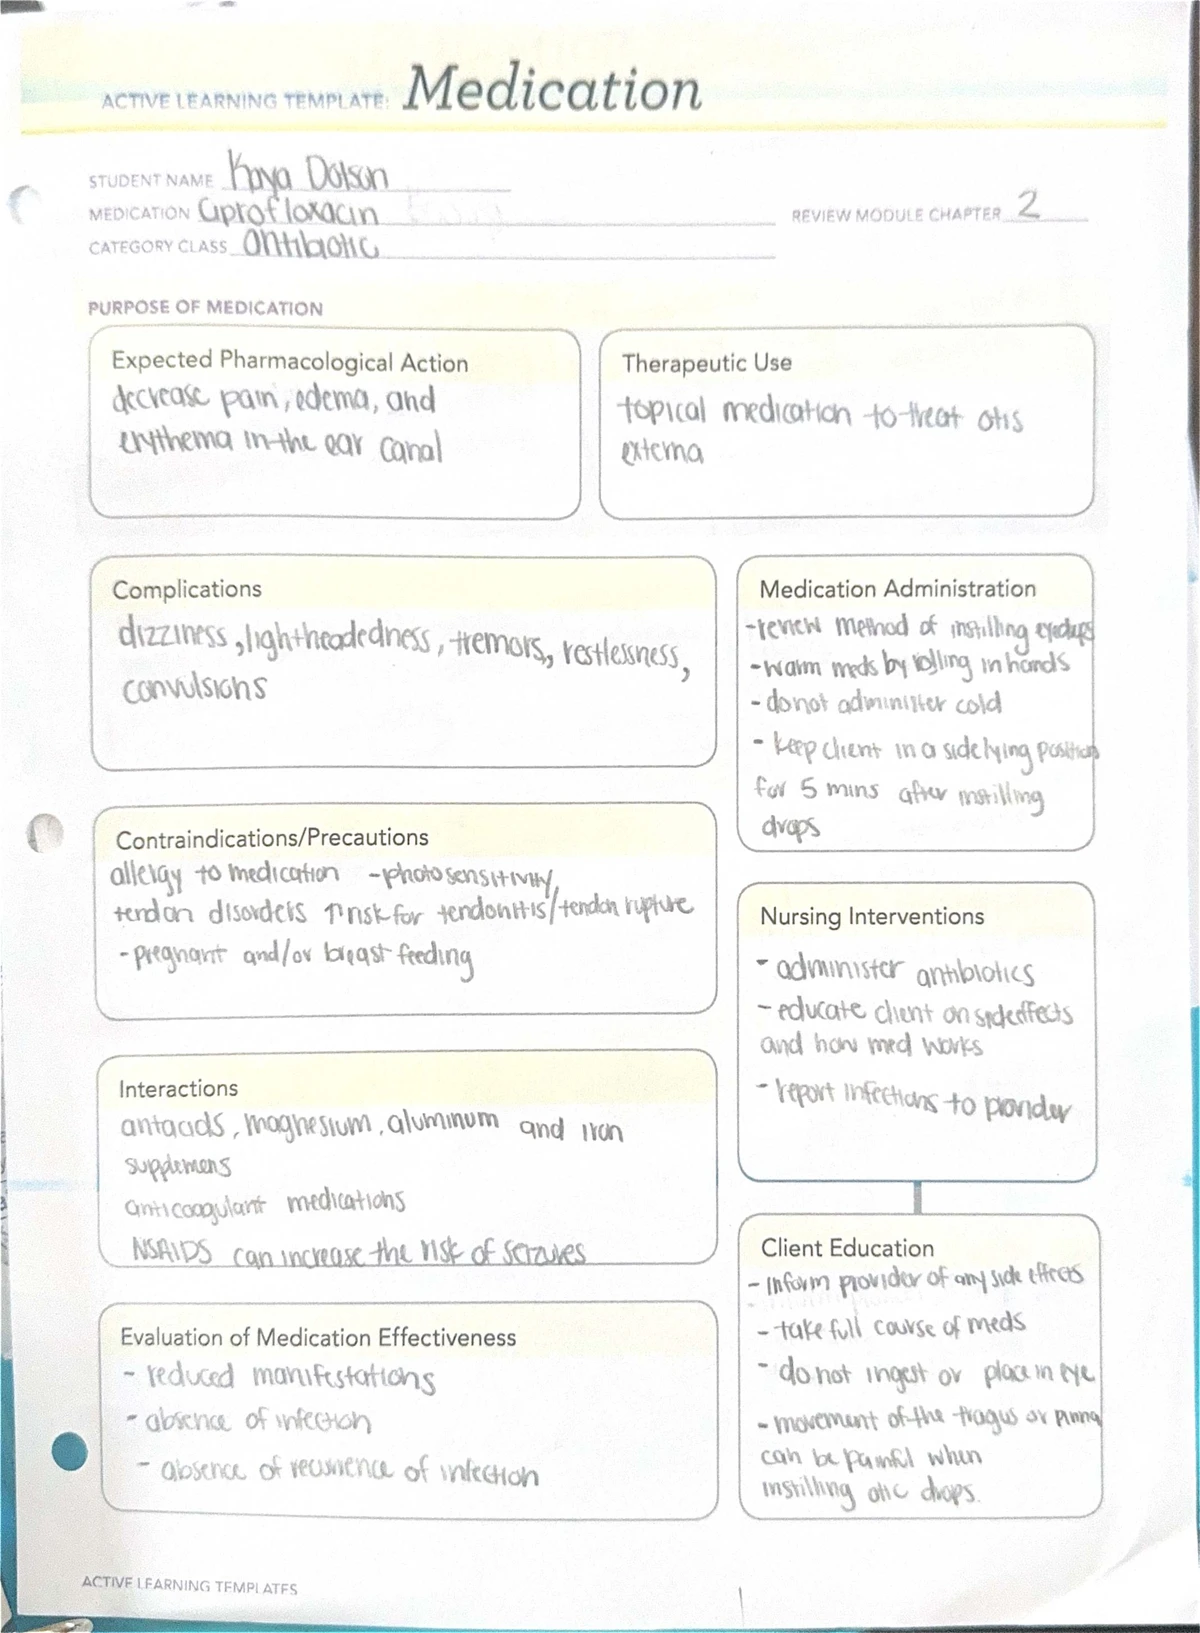 ACTIVE LEARNING TEMPLATE: Medication
STUDENT NAME Kaya Dotson
MEDICATION Ciprofloxacin
REVIEW MODULE CHAPTER 2
CATEGORY CLASS antibiotic
PURPOSE OF MEDICATION
Expected Pharmacological Action
decrease pain, edema, and
erythema in the ear canal
Therapeutic Use
topical medication to treat otis
externa
Complications
dizziness, lightheadedness, tremors, restlessness,
convulsions
Medication Administration
-review method of instilling eyedrops
-warm meds by rolling in hands
- do not administer cold
- keep client in a side lying position
for 5 mins after instilling
drops
Contraindications/Precautions
allergy to medication -photosensitivity,
tendon disorders ↑ risk for tendonitis/tendon rupture
- pregnant and/or breast feeding
Nursing Interventions
- administer antibiotics
- educate client on side effects
and how med works
- report infections to provider
Interactions
antacids, magnesium, aluminum and iron
supplemens
anticoagulant medications
NSAIDS can increase the risk of seizures
Client Education
- inform provider of any side effects
- take full course of meds
- do not ingest or place in eye
- movement of the tragus or pinna
can be painful when
instilling otic drops.
Evaluation of Medication Effectiveness
- reduced manifestations
- absence of infection
- absence of recurrence of infection
ACTIVE LEARNING TEMPLATES